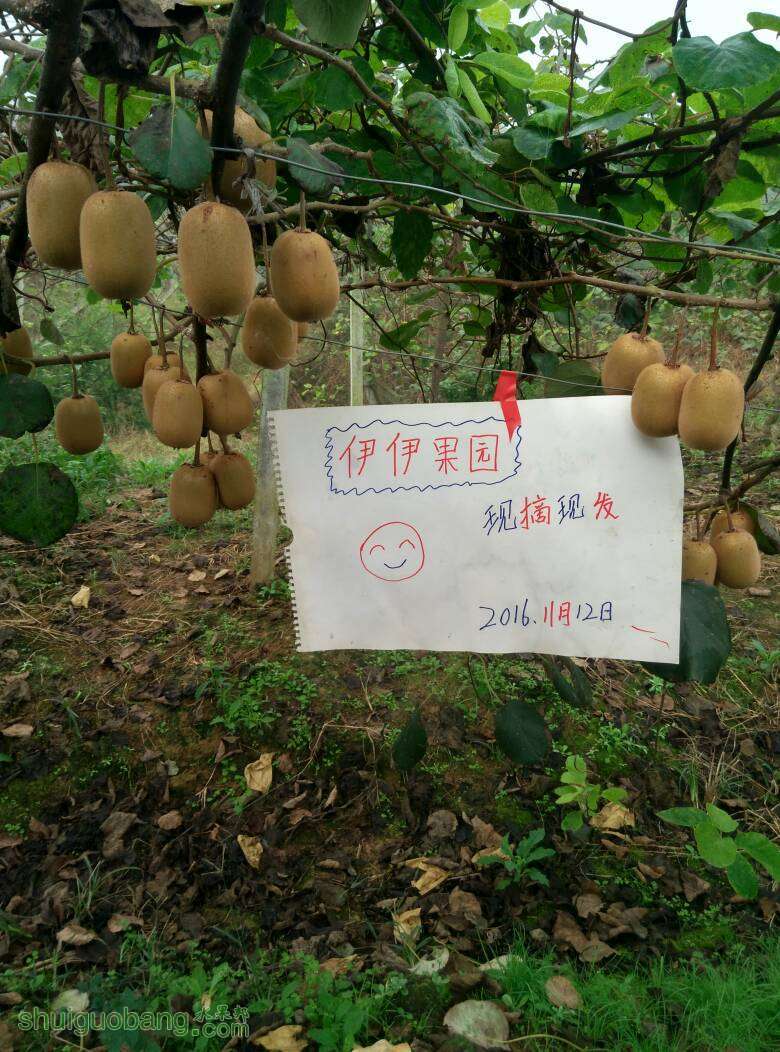 伊伊果园
现摘现发
2016.11月12日
shuiguobang.com 水果邦